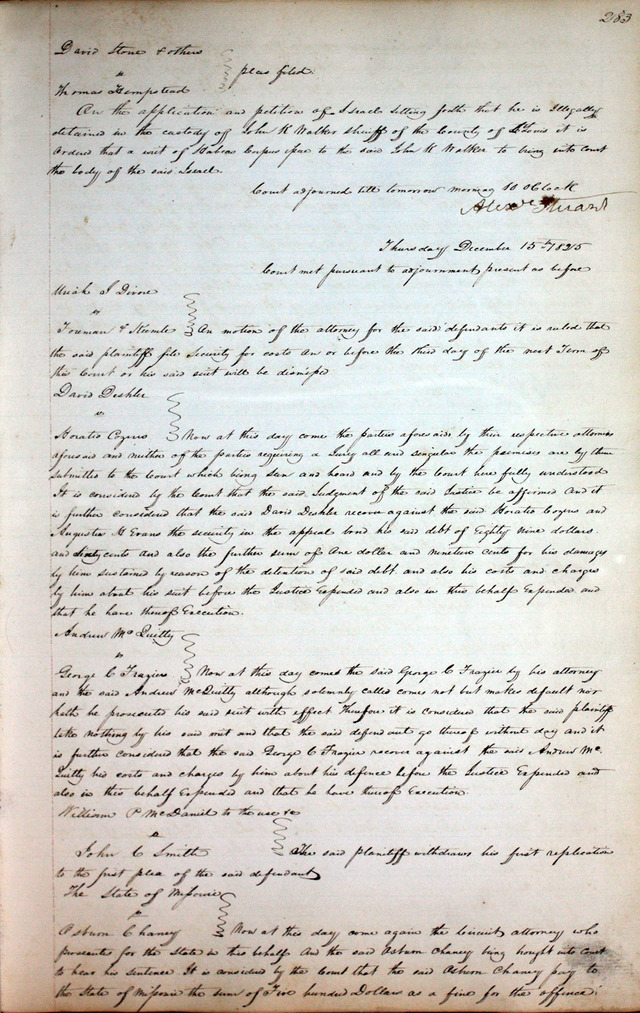 283
David Stone & others
vs
pleas filed.
Thomas Hempstead
On the application and petition of Israel setting forth that he is Illegally
detained in the custody of John K Walker sheriff of the County of St Louis it is
ordered that a writ of Habeas Corpus issue to the said John K Walker to bring into court
the body of the said Israel.
Court adjourned till tomorrow morning 10 oClock
Alexr Stuart
Thursday December 15th 1825
Court met pursuant to adjournment present as before
Uriah J Divore
vs
Foreman & On motion of the attorney for the said defendants it is ruled that
the said plaintiff file Security for costs on or before the third day of the next Term of
this Court or his said suit will be dismissed
David Deshler
vs
Horatio Cozens Now at this day come the parties aforesaid by their respective attornies
aforesaid and neither of the parties requiring a Jury all and singular the premises are by them
submitted to the Court which being seen and heard and by the Court here fully understood
It is considered by the Court that the said Judgment of the said Justice be affirmed And it
is further considered that the said David Deshler recover against the said Horatio Cozens and
Augustus H Evans the security in the appeal bond his said debt of Eighty Nine dollars
and sixty cents and also the further sum of One dollar and nineteen cents for his damages
by him sustained by reason of the detention of said debt and also his costs and charges
by him about his suit before the Justice Expended and also in this behalf Expended and
that he have thereof Execution.
Andrew McQuitty
vs
George C Frazier Now at this day comes the said George C Frazier by his attorney
and the said Andrew McQuitty although solemnly called comes not but makes default nor
hath he prosecuted his said suit with effect Therefore it is considered that the said plaintiff
take nothing by his said writ and that the said defendant go thereof without day and it
is further considered that the said George C Frazier recover against the said Andrew Mc
Quitty his costs and charges by him about his defence before the Justice Expended and
also in this behalf Expended and that he have thereof Execution.
William P McDaniel to the use &c
vs
John C Smith The said plaintiff withdraws his first replication
to the first plea of the said defendant
The State of Missouri
vs
Asburn Chaney Now at this day come again the Circuit attorney who
prosecutes for the State in this behalf And the said Asburn Chaney being brought into Court
to hear his sentence. It is considered by the Court that the said Asburn Chaney pay to
the State of Missouri the sum of Five hundred Dollars as a fine for the offence